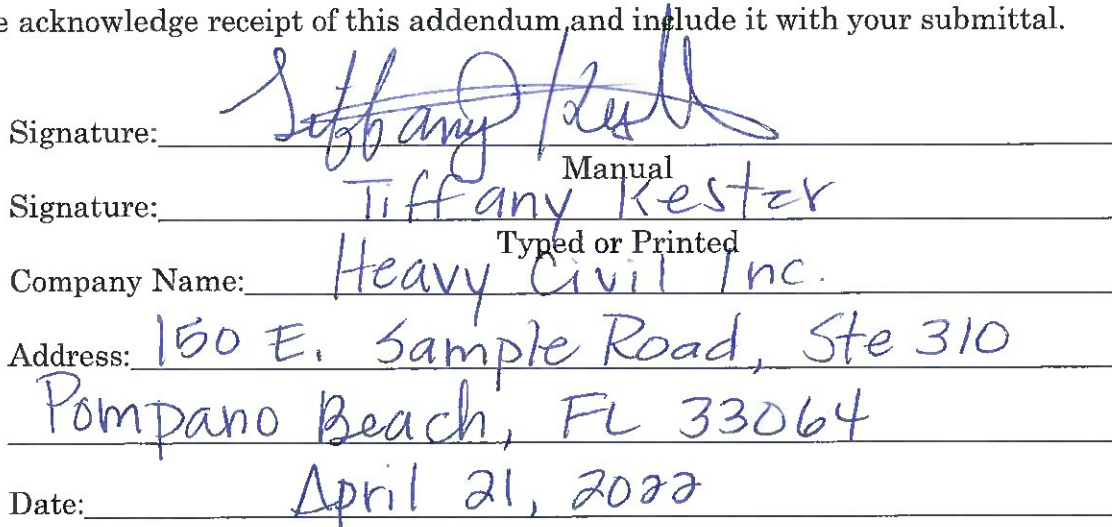 e acknowledge receipt of this addendum and include it with your submittal.
Signature: Tiffany Kest
Manual
Signature: Tiffany Kester
Typed or Printed
Company Name: Heavy Civil Inc.
Address: 150 E. Sample Road, Ste 310
Pompano Beach, FL 33064
Date: April 21, 2022